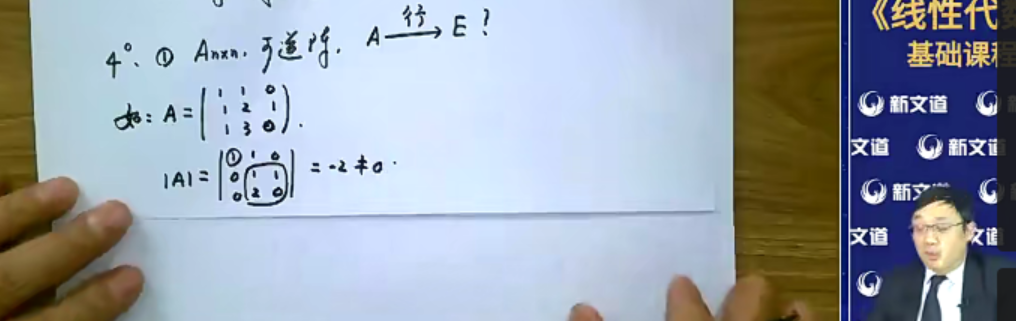 4°. ① Aₙₓₙ. 可逆阵. A —行→ E ?
如: A = ( 1 1 0
1 2 1
1 3 0 ).
|A| = | ① 1 0
0 1 1
0 2 0 | = -2 ≠ 0.
《线性代数
基础课程
新文道
文道 新文道
新文道
文道 文道